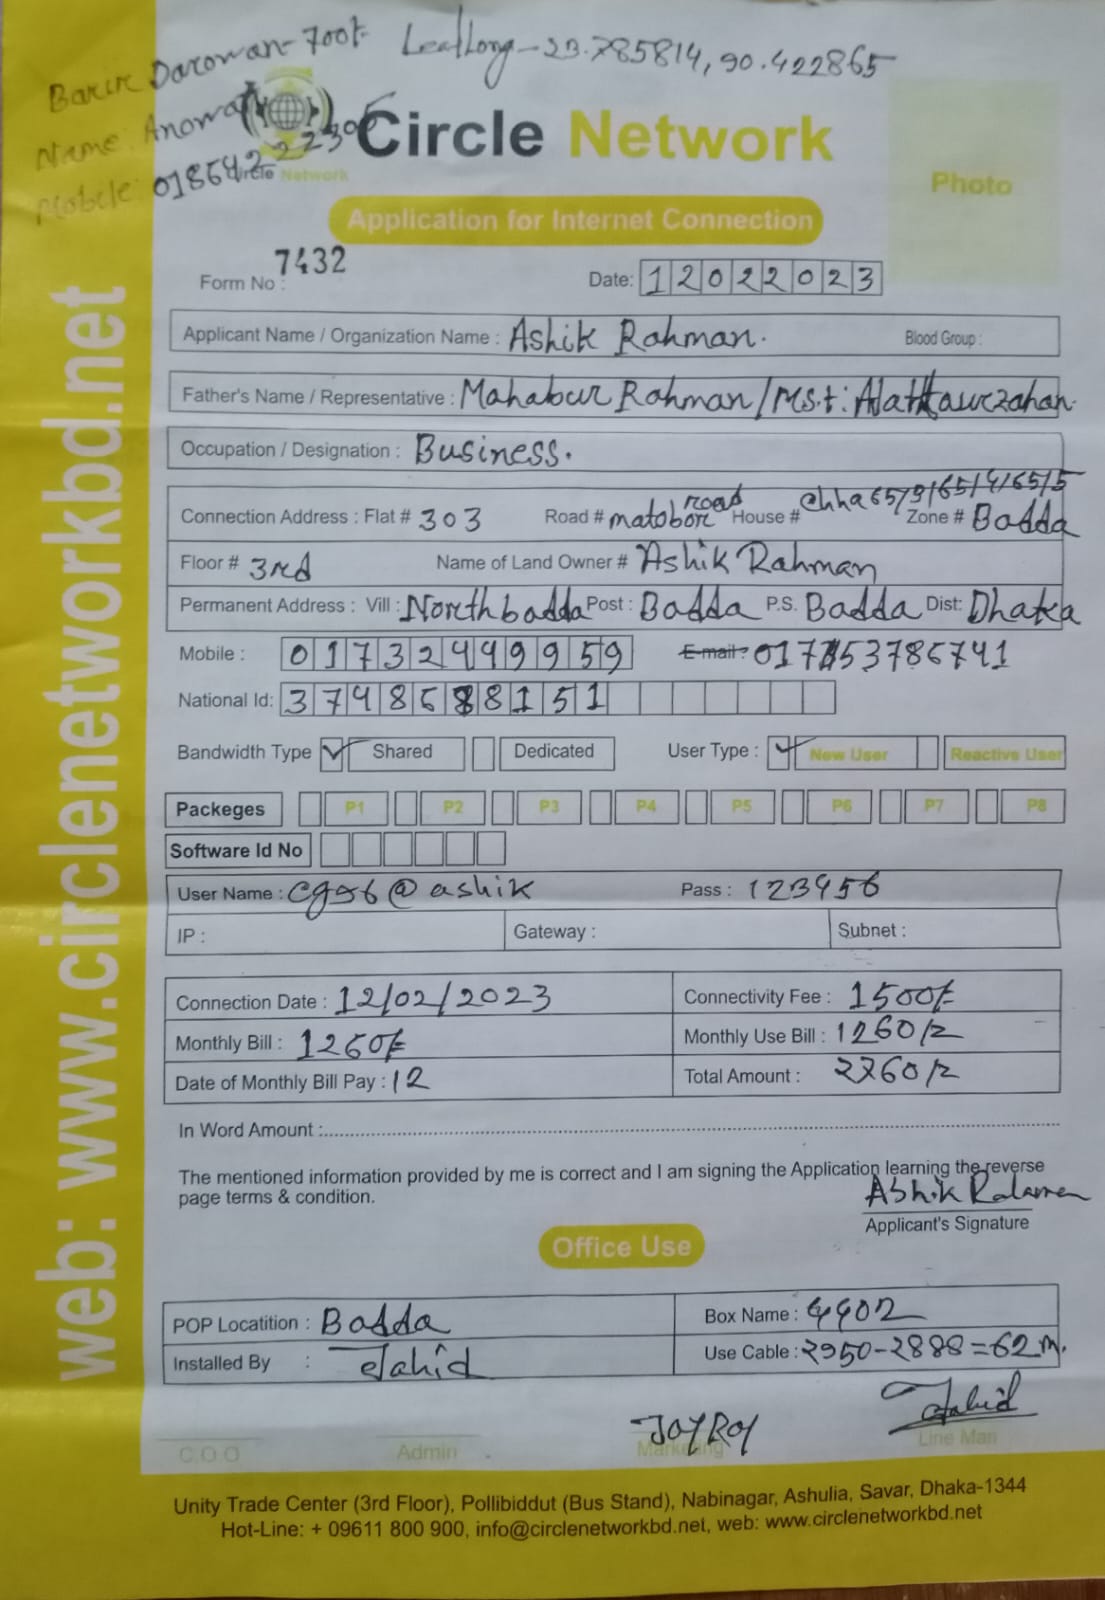 Barir Darowan- 700t Lat Long - 23.785814, 90.422865
Name: Anowar
Mobile: 01864222239
Circle Network
Circle Network
Photo
Application for Internet Connection
Form No : 7432 Date: 12022023
Applicant Name / Organization Name : Ashik Rahman. Blood Group :
Father's Name / Representative : Mahabur Rahman / Mst:
Occupation / Designation : Business.
Connection Address : Flat # 303 Road # matobor road House # chha 65/9/65/4/65/5 Zone # Badda
Floor # 3rd Name of Land Owner # Ashik Rahman
Permanent Address : Vill : North badda Post : Badda P.S. Badda Dist: Dhaka
Mobile : 01732499959 E-mail :
National Id: 3748688151
Bandwidth Type ✓ Shared Dedicated User Type : ✓ New User Reactive User
Packeges P1 P2 P3 P4 P5 P6 P7 P8
Software Id No
User Name : cg56@ashik Pass : 123456
IP : Gateway : Subnet :
Connection Date : 12/02/2023 Connectivity Fee : 1500/=
Monthly Bill : 1260/= Monthly Use Bill : 1260/=
Date of Monthly Bill Pay : 12 Total Amount : 2760/=
In Word Amount :
The mentioned information provided by me is correct and I am signing the Application learning the reverse
page terms & condition.
Ashik Rahman
Applicant's Signature
Office Use
POP Locatition : Badda Box Name :
Installed By : Jahid Use Cable : 2950-2888=62 m.
JOY ROY Jahid
C.O.O Admin Marketing Line Man
Unity Trade Center (3rd Floor), Pollibiddut (Bus Stand), Nabinagar, Ashulia, Savar, Dhaka-1344
Hot-Line: + 09611 800 900, info@circlenetworkbd.net, web: www.circlenetworkbd.net
web: www.circlenetworkbd.net